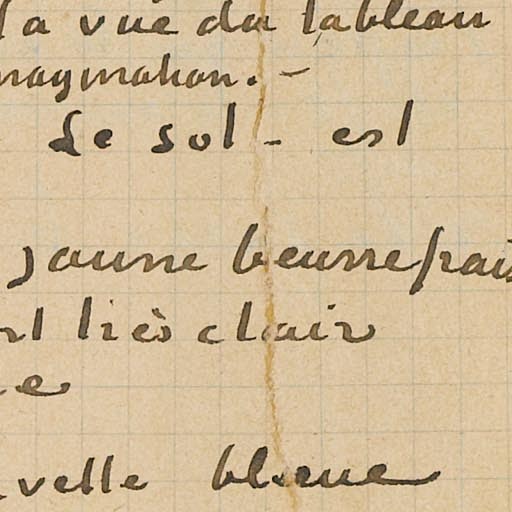 la vue du tableau
magination. –
Le sol – est
jaune beurre frais
est très clair
velle bleue